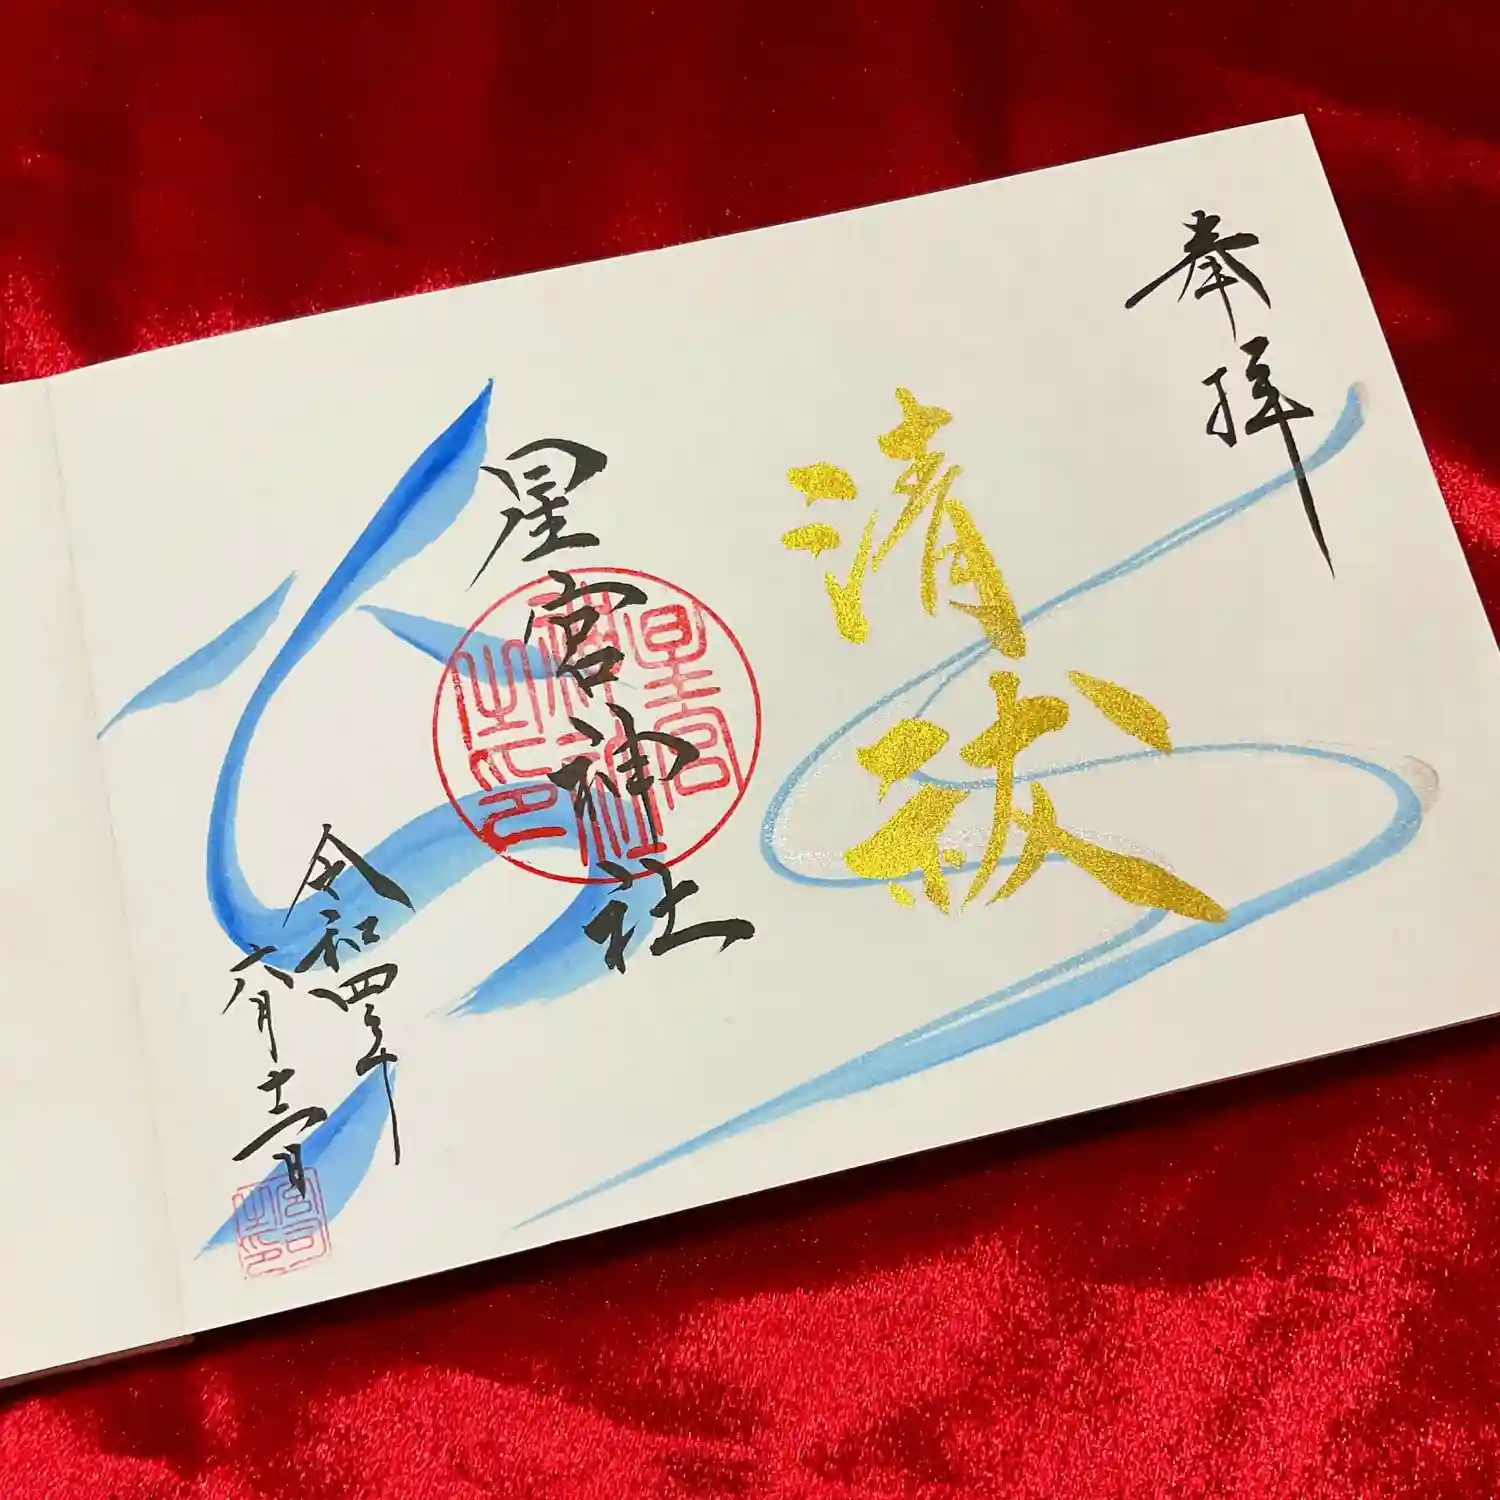 奉拝
清祓
星宮神社
星宮
神社
之印
令和四年
六月十二日
宮司
之印